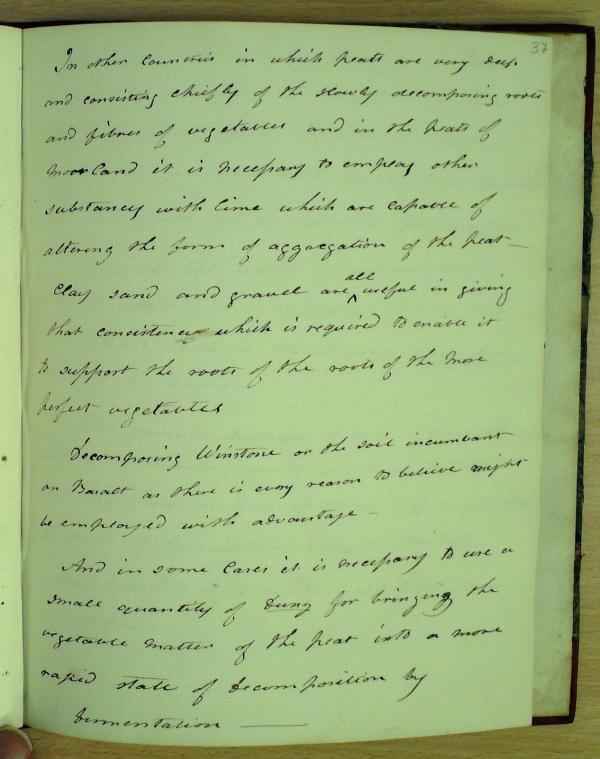 37
In other Countries in which peats are very deep
and consisting chiefly of the slowly decomposing roots
and fibres of vegetables and in the peats of
moor Land it is necessary to employ other
substances with lime which are capable of
altering the form of aggregation of the peat —
Clay sand and gravel are all useful in giving
that consistence which is required to enable it
to support the roots of the roots of the more
perfect vegetables
Decomposing Winstone or the soil incumbant
on Basalt as there is every reason to believe might
be employed with advantage —
And in some Cases it is necessary to use a
small quantity of Dung for bringing the
vegetable matter of the peat into a more
rapid state of decomposition by
fermentation ———